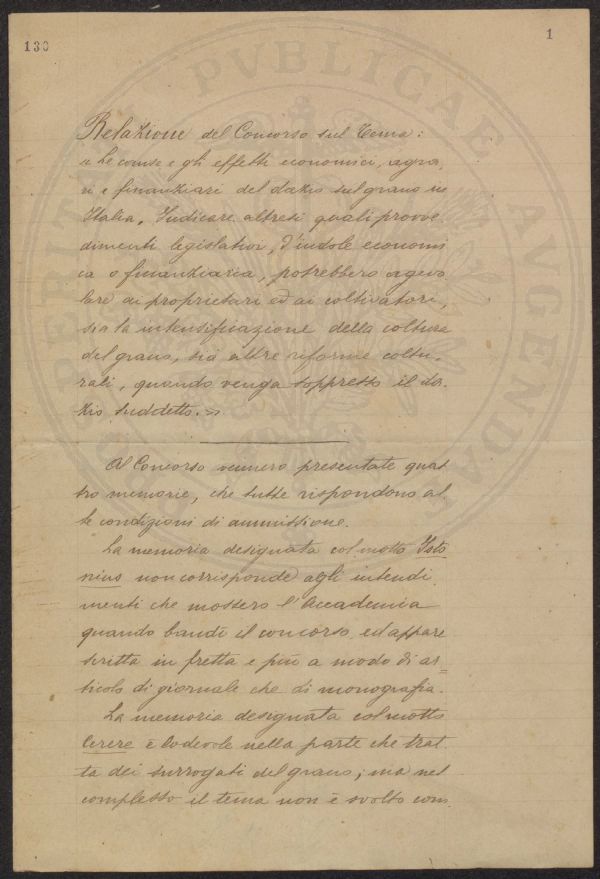 130
1
Relazione del Concorso sul Tema:
« Le cause e gli effetti economici, agra,
ri e finanziari del dazio sul grano in
Italia. Indicare altresì quali provve
dimenti legislativi, d'indole economi
ca o finanziaria, potrebbero agevo
lare ai proprietari ed ai coltivatori,
sia la intensificazione della coltura
del grano, sia altre riforme coltu,
rali, quando venga soppresso il da.
zio suddetto. »
Al Concorso vennero presentate quat
tro memorie, che tutte rispondono al
le condizioni di ammissione.
La memoria designata col motto Isto
nius non corrisponde agli intendi
menti che mossero l'Accademia
quando bandì il concorso, ed appare
scritta in fretta e più a modo di ar=
ticolo di giornale che di monografia.
La memoria designata col motto
Cerere è lodevole nella parte che trat
ta dei surrogati del grano; ma nel
complesso il tema non è svolto com.
PVBLICAE AVGENDAE
PROSPERITATI